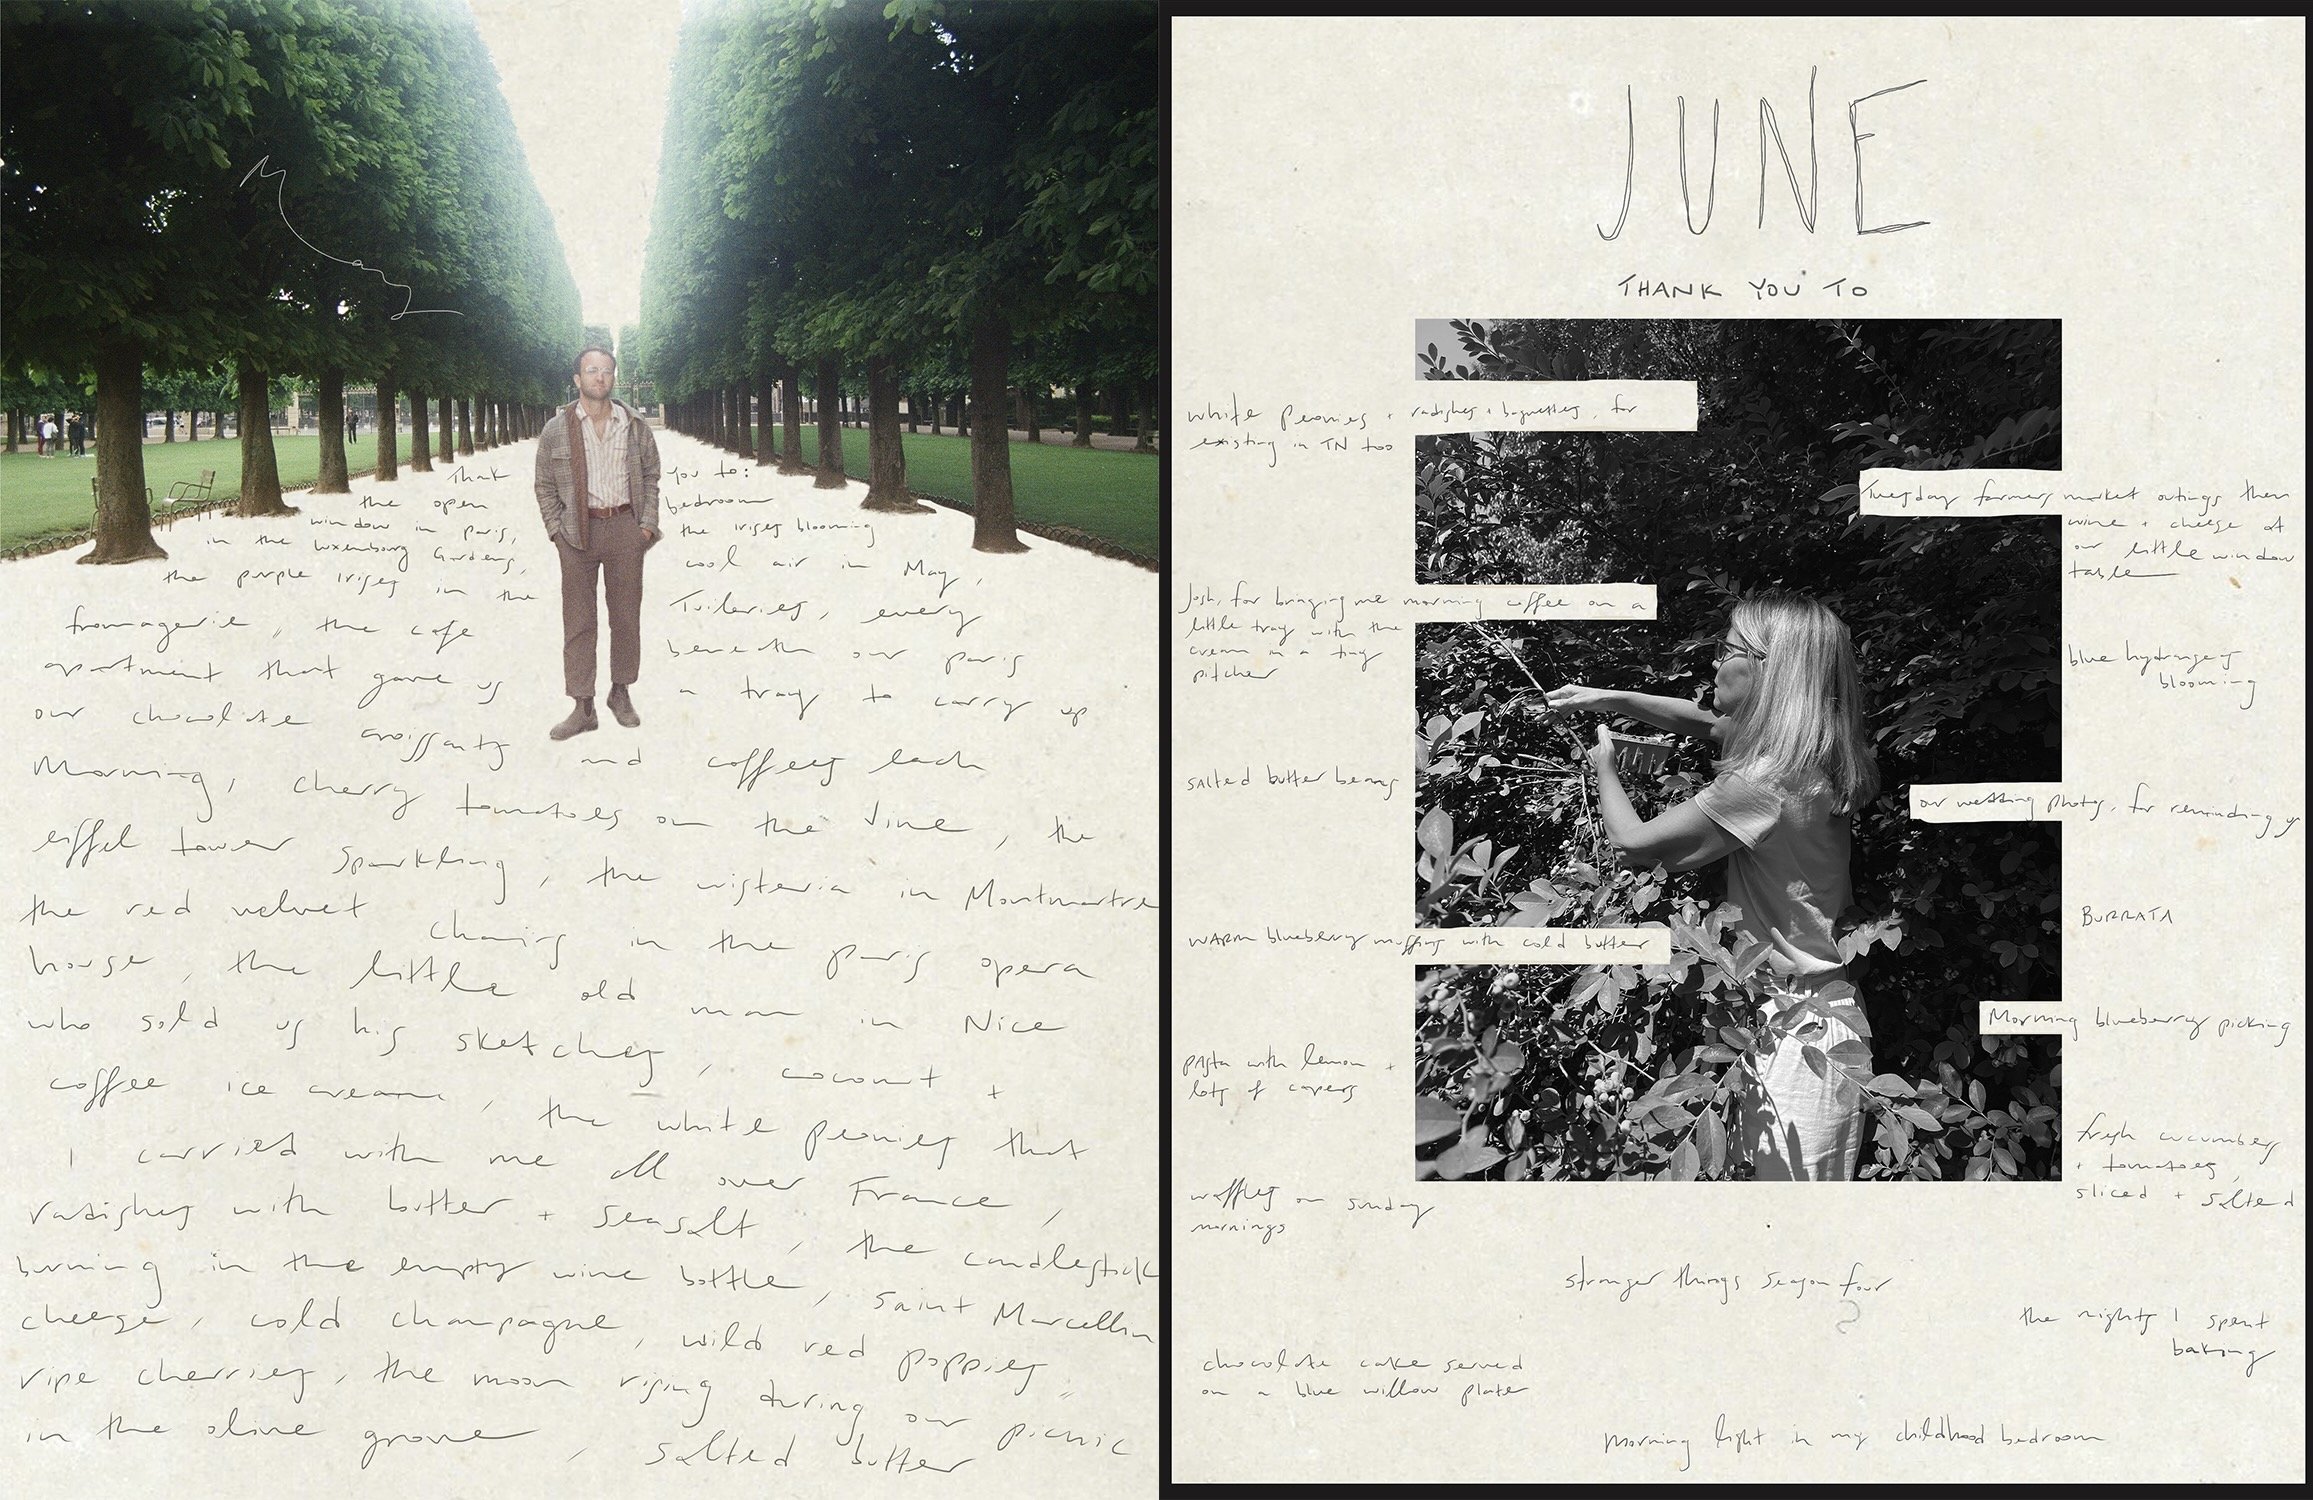 May
Thank you to:
the open bedroom
window in paris, the irises blooming
in the Luxembourg Gardens, cool air in May,
the purple irises in the Tuileries, every
fromagerie, the cafe beneath our paris
apartment that gave us a tray to carry up
our chocolate croissants and coffees each
Morning, cherry tomatoes on the vine, the
eiffel tower sparkling, the wisteria in Montmartre
the red velvet chairs in the paris opera
house, the little old man in Nice
who sold us his sketches, coconut +
coffee ice cream, the white peonies that
I carried with me all over France,
radishes with butter + seasalt, the candlestick
burning in the empty wine bottle, saint Marcellin
cheese, cold champagne, wild red poppies,
ripe cherries, the moon rising during our picnic
in the olive grove, salted butter
JUNE
THANK YOU TO
white peonies + radishes + baguettes, for
existing in TN too
Tuesday farmers market outings then
wine + cheese at
our little window
table
Josh, for bringing me morning coffee on a
little tray with the
cream in a tiny
pitcher
blue hydrangeas
blooming
salted butter beans
our wedding photos, for reminding us
warm blueberry muffins with cold butter
BURRATA
Morning blueberry picking
pasta with lemon +
lots of capers
fresh cucumbers
+ tomatoes,
sliced + salted
waffles on sunday
mornings
stranger things season four
the nights I spent
baking
chocolate cake served
on a blue willow plate
Morning light in my childhood bedroom